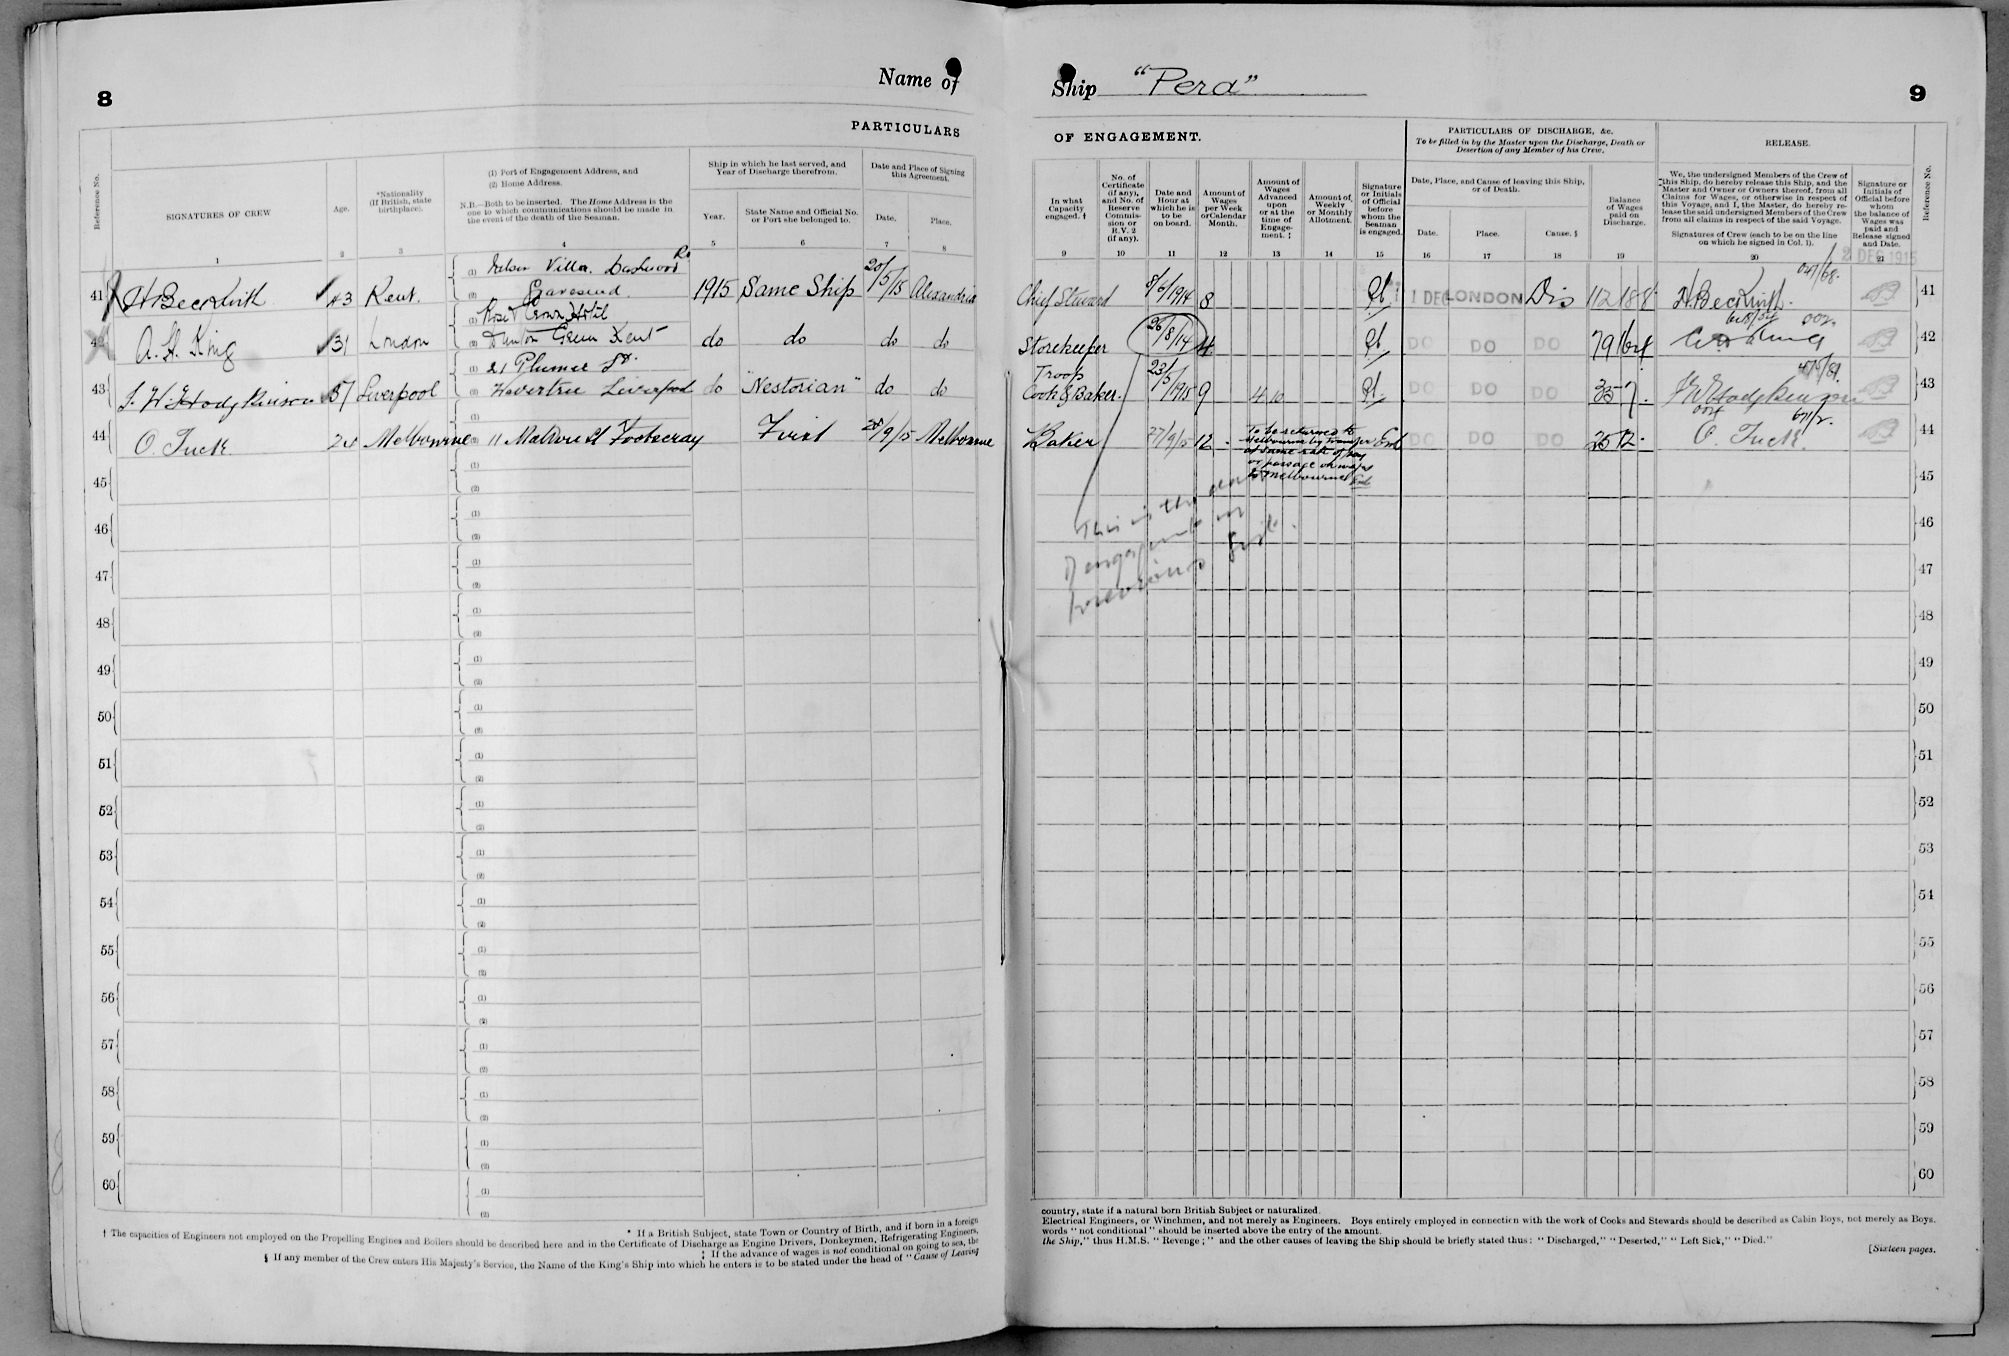 8
Name of
Ship "Pera"
9
PARTICULARS
OF ENGAGEMENT.
Reference No.
SIGNATURES OF CREW
Age.
*Nationality
(If British, state
birthplace).
(1) Port of Engagement Address, and
(2) Home Address.
N.B.—Both to be inserted. The Home Address is the
one to which communications should be made in
the event of the death of the Seaman.
Ship in which he last served, and
Year of Discharge therefrom.
Year.
State Name and Official No.
or Port she belonged to.
Date and Place of Signing
this Agreement.
Date.
Place.
1 2 3 4 5 6 7 8
In what
Capacity
engaged. †
No. of
Certificate
(if any),
and No. of
Reserve
Commis-
sion or
R.V. 2
(if any).
Date and
Hour at
which he is
to be
on board.
Amount of
Wages
per Week
or Calendar
Month.
Amount of
Wages
Advanced
upon
or at the
time of
Engage-
ment. ‡
Amount of
Weekly
or Monthly
Allotment.
Signature
or Initials
of Official
before
whom the
Seaman
is engaged.
PARTICULARS OF DISCHARGE, &c.
To be filled in by the Master upon the Discharge, Death or
Desertion of any Member of his Crew.
Date, Place, and Cause of leaving this Ship,
or of Death.
Date.
Place.
Cause. §
Balance
of Wages
paid on
Discharge.
RELEASE.
We, the undersigned Members of the Crew of
this Ship, do hereby release this Ship, and the
Master and Owner or Owners thereof, from all
Claims for Wages, or otherwise in respect of
this Voyage, and I, the Master, do hereby re-
lease the said undersigned Members of the Crew
from all claims in respect of the said Voyage.
Signatures of Crew (each to be on the line
on which he signed in Col. 1).
Signature or
Initials of
Official before
whom
the balance of
Wages was
paid and
Release signed
and Date.
Reference No.
9 10 11 12 13 14 15 16 17 18 19 20 21
2 DEC 1915
41 H Beckwith 43 Kent. (1) Villa. Dashwood Rd
(2) Gravesend 1915 Same Ship 20/5/15 Alexandria
Chief Steward 8/6/1914 8 1 DEC LONDON Dis 112 18 8 H. Beckwith. 41
42 A. H. King 31 London (1) Rose & Crown Hotel
(2) Dunton Green Kent do do do do
Storekeeper 26/8/14 4 DO DO DO 79 42
43 Hodgkinson Liverpool (1) 21 Plumer St.
(2) Wavertree Liverpool do "Nestorian" do do
Troop
Cook & Baker. 23/5/1915 9 4 10 DO DO DO 35 7 Hodgkinson 43
44 O. Tuck Melbourne (1)
(2) 11 St Footscray First 28/9/15 Melbourne
Baker 27/9/15 12 DO DO DO 25 12 O. Tuck 44
To be returned to
Melbourne by transfer
at same rate of pay
or passage
to Melbourne
This is the date
of engagement on
previous list.
45 (1) (2) 45
46 (1) (2) 46
47 (1) (2) 47
48 (1) (2) 48
49 (1) (2) 49
50 (1) (2) 50
51 (1) (2) 51
52 (1) (2) 52
53 (1) (2) 53
54 (1) (2) 54
55 (1) (2) 55
56 (1) (2) 56
57 (1) (2) 57
58 (1) (2) 58
59 (1) (2) 59
60 (1) (2) 60
* If a British Subject, state Town or Country of Birth, and if born in a foreign
country, state if a natural born British Subject or naturalized.
† The capacities of Engineers not employed on the Propelling Engines and Boilers should be described here and in the Certificate of Discharge as Engine Drivers, Donkeymen, Refrigerating Engineers,
Electrical Engineers, or Winchmen, and not merely as Engineers. Boys entirely employed in connection with the work of Cooks and Stewards should be described as Cabin Boys, not merely as Boys.
‡ If the advance of wages is not conditional on going to sea, the
words "not conditional" should be inserted above the entry of the amount.
§ If any member of the Crew enters His Majesty's Service, the Name of the King's Ship into which he enters is to be stated under the head of "Cause of Leaving
the Ship," thus H.M.S. "Revenge;" and the other causes of leaving the Ship should be briefly stated thus: "Discharged," "Deserted," "Left Sick," "Died."
[Sixteen pages.